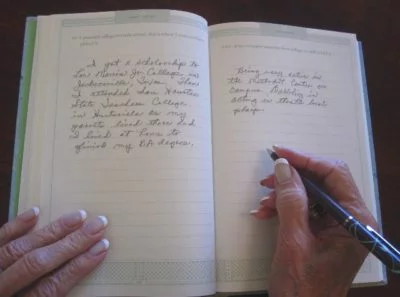 I got a scholarship to
Lon Morris Jr. College in
Jacksonville, Texas. Then
I attended Sam Houston
State Teachers College
in Huntsville as my
parents lived there and
I lived at home to
finish my BA degree.
Being very active in
the Methodist Center on
campus.
acting in
plays.